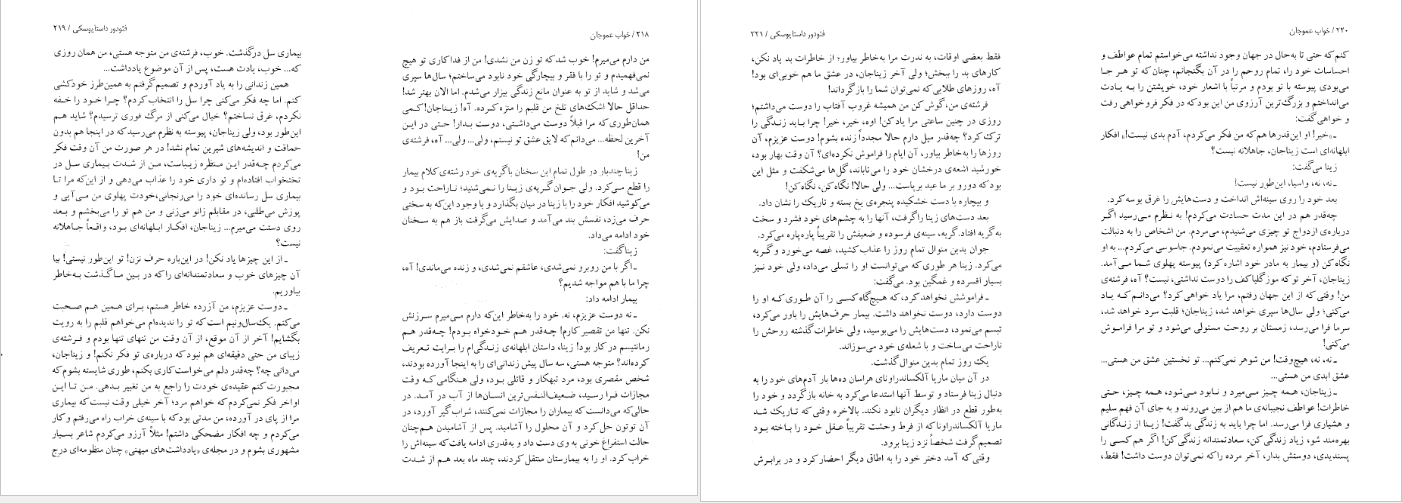 ۲۱۸ / خواب عموجان
من دارم می‌میرم! خوب شد که تو زن من نشدی! من از فداکاری تو هیچ
نمی‌فهمیدم و تو را با فقر و بیچارگی خود نابود می‌ساختم؛ سال‌ها سپری
می‌شد و شاید از تو به عنوان مانع زندگی بیزار می‌شدم. اما الان بهتر شد!
حداقل حالا اشک‌های تلخ من قلبم را منزه کرده. آه! زیناجان! کمی
همان‌طوری که مرا قبلاً دوست می‌داشتی، دوست بدار! حتی در این
آخرین لحظه... می‌دانم که لایق عشق تو نیستم، ولی... ولی... آه، فرشته‌ی
من!
زینا چندبار در طول تمام این سخنان با گریه‌ی خود رشته‌ی کلام بیمار
را قطع می‌کرد. ولی جوان گریه‌ی زینا را نمی‌شنید؛ ناراحت بود و
می‌کوشید افکار خود را با زینا در میان بگذارد و با وجود این‌که به سختی
حرف می‌زد، نفسش بند می‌آمد و صدایش می‌گرفت باز هم به سخنان
خود ادامه می‌داد.
زینا گفت:
ـ اگر با من روبرو نمی‌شدی، عاشقم نمی‌شدی، و زنده می‌ماندی! آه،
چرا ما با هم مواجه شدیم؟
بیمار ادامه داد:
ـ نه دوست عزیزم، نه. خود را به‌خاطر این‌که دارم می‌میرم سرزنش
نکن. تنها من تقصیر کارم! چه‌قدر هم خودخواه بودم! چه‌قدر هم
رمانتیسم در کار بود! زینا، داستان ابلهانه‌ی زندگی‌ام را برایت تعریف
کرده‌اند؟ متوجه هستی، سه سال پیش زندانی‌ای را به اینجا آورده بودند،
شخص مقصری بود، مرد تبهکار و قاتلی بود، ولی هنگامی‌که وقت
مجازات فرا رسید، ضعیف‌النفس‌ترین انسان‌ها از آب در آمد. در
حالی‌که می‌دانست که بیماران را مجازات نمی‌کنند، شراب گیر آورد، در
آن توتون حل کرد و آن محلول را آشامید. پس از آشامیدن هم‌چنان
حالت استفراغ خونی به وی دست داد و به‌قدری ادامه یافت که سینه‌اش را
خراب کرد. او را به بیمارستان منتقل کردند، چند ماه بعد هم از شدت
فئودور داستایوسکی / ۲۱۹
بیماری سل درگذشت. خوب، فرشته‌ی من متوجه هستی، من همان روزی
که... خوب، یادت هست، پس از آن موضوع یادداشت...
همین زندانی را به یاد آوردم و تصمیم گرفتم به همین‌طرز خودکشی
کنم. اما چه فکر می‌کنی چرا سل را انتخاب کردم؟ چرا خود را خفه
نکردم، غرق نساختم؟ خیال می‌کنی از مرگ فوری ترسیدم؟ شاید هم
این‌طور بود، ولی زیناجان، پیوسته به نظرم می‌رسید که در اینجا هم بدون
حماقت و اندیشه‌های شیرین تمام نشد! در هر صورت من آن وقت فکر
می‌کردم چه‌قدر این منظره زیباست، من از شدت بیماری سل در
تختخواب افتاده‌ام و تو داری خود را عذاب می‌دهی و از این‌که مرا تا
بیماری سل رسانده‌ای خود را می‌رنجانی، خودت پهلوی من می‌آیی و
پوزش می‌طلبی، در مقابلم زانو می‌زنی و من هم تو را می‌بخشم و بعد
روی دستت می‌میرم... زیناجان، افکار ابلهانه‌ای بود، واقعاً جاهلانه
نیست؟
ـ از این چیزها یاد نکن! در این‌باره حرف نزن! تو این‌طور نیستی! بیا
آن چیزهای خوب و سعادتمندانه‌ای را که در بین ما گذشت به‌خاطر
بیاوریم.
ـ دوست عزیزم، من آزرده خاطر هستم، برای همین هم صحبت
می‌کنم. یک‌سال‌ونیم است که تو را ندیده‌ام می‌خواهم قلبم را به رویت
بگشایم! آخر از آن موقع، از آن وقت من تنهای تنها بودم و فرشته‌ی
زیبای من حتی دقیقه‌ای هم نبود که درباره‌ی تو فکر نکنم! و زیناجان،
می‌دانی چه؟ چه‌قدر دلم می‌خواست کاری بکنم، طوری شایسته بشوم که
مجبورت کنم عقیده‌ی خودت را راجع به من تغییر بدهی. من تا این
اواخر فکر نمی‌کردم که خواهم مرد؛ آخر خیلی وقت نیست که بیماری
مرا از پای در آورده، من مدتی بود که با سینه‌ی خراب راه می‌رفتم و کار
می‌کردم و چه افکار مضحکی داشتم! مثلاً آرزو می‌کردم شاعر بسیار
مشهوری بشوم و در مجله‌ی «یادداشت‌های میهنی» چنان منظومه‌ای درج
۲۲۰ / خواب عموجان
کنم که حتی تا به‌حال در جهان وجود نداشته می‌خواستم تمام عواطف و
احساسات خود را، تمام روحم را در آن بگنجانم، چنان که تو هر جا
می‌بودی پیوسته با تو بودم و مرتباً با اشعار خود، خویشتن را به یادت
می‌انداختم و بزرگ‌ترین آرزوی من این بود که در فکر فروخواهی رفت
و خواهی گفت:
ـ «خیر! او این‌قدرها هم که من فکر می‌کردم، آدم بدی نیست!» افکار
ابلهانه‌ای است زیناجان، جاهلانه نیست؟
زینا می‌گفت:
ـ نه، نه، واسیا، این‌طور نیست!
بعد خود را روی سینه‌اش انداخت و دست‌هایش را غرق بوسه کرد.
ـ چه‌قدر هم در این مدت حسادت می‌کردم! به نظرم می‌رسید اگر
درباره‌ی ازدواج تو چیزی می‌شنیدم، می‌مردم. من اشخاص را به دنبالت
می‌فرستادم، خود نیز همواره تعقیبت می‌نمودم. جاسوسی می‌کردم... به او
نگاه کن (و بیمار به مادر خود اشاره کرد) پیوسته پهلوی شما می‌آمد.
زیناجان، آخر تو که موزگلیاکف را دوست نداشتی، نیست؟ آه، فرشته‌ی
من! وقتی که از این جهان رفتم، مرا یاد خواهی کرد؟ می‌دانم که یاد
می‌کنی؛ ولی سال‌ها سپری خواهد شد، زیناجان؛ قلبت سرد خواهد شد،
سرما فرا می‌رسد، زمستان بر روحت مستولی می‌شود و تو مرا فراموش
می‌کنی!
ـ نه، نه، هیچ‌وقت! من شوهر نمی‌کنم... تو نخستین عشق من هستی...
عشق ابدی من هستی...
ـ زیناجان، همه چیز می‌میرد و نابود می‌شود، همه چیز، حتی
خاطرات! عواطف نجیبانه‌ی ما هم از بین می‌روند و به جای آن فهم سلیم
و هشیاری فرا می‌رسد. اما چرا باید به زندگی بد گفت! زینا از زندگانی
بهره‌مند شو، زیاد زندگی کن، سعادتمندانه زندگی کن! اگر هم کسی را
پسندیدی، دوستش بدار، آخر مرده را که نمی‌توان دوست داشت! فقط،
فئودور داستایوسکی / ۲۲۱
فقط بعضی اوقات، به ندرت مرا به‌خاطر بیاور؛ از خاطرات بد یاد نکن،
کارهای بد را ببخش؛ ولی آخر زیناجان، در عشق ما هم خوبی‌ای بود!
آه، روزهای طلایی که نمی‌توان شما را بازگرداند!
فرشته‌ی من، گوش کن من همیشه غروب آفتاب را دوست می‌داشتم؛
روزی در چنین ساعتی مرا یاد کن! اوه، خیر، خیر! چرا باید زندگی را
ترک کرد؟ چه‌قدر میل دارم حالا مجدداً زنده بشوم! دوست عزیزم، آن
روزها را به‌خاطر بیاور، آن ایام را فراموش نکرده‌ای؟ آن وقت بهار بود،
خورشید اشعه‌ی درخشان خود را می‌تاباند، گل‌ها می‌شکفت و مثل این
بود که دورو بر ما عید برپاست... ولی حالا! نگاه کن، نگاه کن!
و بیچاره با دست خشکیده پنجره‌ی یخ بسته و تاریک را نشان داد.
بعد دست‌های زینا را گرفت، آنها را به چشم‌های خود فشرد و سخت
به‌گریه افتاد. گریه، سینه‌ی فرسوده و ضعیفش را تقریباً پاره‌پاره می‌کرد.
جوان بدین منوال تمام روز را عذاب کشید، غصه می‌خورد و گریه
می‌کرد. زینا هر طوری که می‌توانست او را تسلی می‌داد، ولی خود نیز
بسیار افسرده و غمگین بود. می‌گفت:
ـ فراموشش نخواهد کرد، که هیچ‌گاه کسی را آن طوری که او را
دوست دارد، دوست نخواهد داشت. بیمار حرف‌هایش را باور می‌کرد،
تبسم می‌نمود، دست‌هایش را می‌بوسید، ولی خاطرات گذشته روحش را
ناراحت می‌ساخت و با شعله‌ی خود می‌سوزاند.
یک روز تمام بدین منوال گذشت.
در آن میان ماریا آلکساندراونای هراسان ده‌ها بار آدم‌های خود را به
دنبال زینا فرستاد و توسط آنها استدعا می‌کرد به خانه بازگردد و خود را
به‌طور قطع در انظار دیگران نابود نکند. بالاخره وقتی که تاریک شد
ماریا آلکساندراونا که از فرط وحشت تقریباً عقل خود را باخته بود
تصمیم گرفت شخصاً نزد زینا برود.
وقتی که آمد دختر خود را به اطاق دیگر احضار کرد و در برابرش